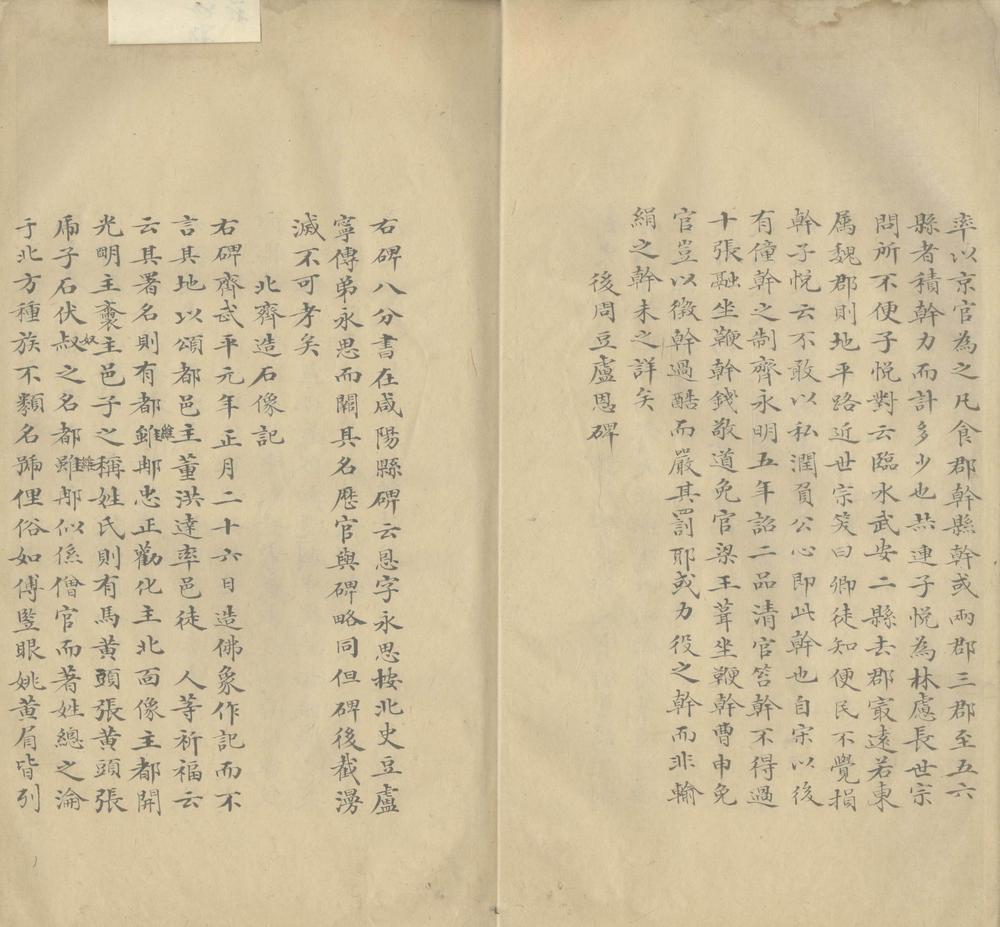 率以京官為之凡食郡幹縣幹或兩郡三郡至五六
縣者積幹力而計多少也𤇆連子悅為林慮長世宗
問所不便子悅對云臨水武安二縣去郡㝡遠若東
属魏郡則地平路近世宗笑曰卿徒知便民不覺損
幹子悅云不敢以私潤負公心即此幹也自宋以後
有僮幹之制齊永明五年詔二品清官笞幹不得過
十張融坐鞭幹錢敬道免官梁王葺坐鞭幹曹申免
官豈以徵幹過酷而嚴其罰耶或力役之幹而非輸
絹之幹未之詳矣
後周豆盧恩碑
右碑八分書在咸陽縣碑云恩字永思按北史豆盧
寧傳弟永思而闕其名歷官與碑略同但碑後截漫
滅不可考矣
北齊造石像記
右碑齊武平元年正月二十六日造佛象作記而不
言其地以頌都邑主董洪達率邑徒 人等祈福云
云其署名則有都雖維那忠正勸化主北面像主都開
光明主齋主邑子之稱姓氏則有馬黃頭張黃頭張
乕子石伏叔奴之名都雖維那似係僧官而著姓總之淪
于北方種族不類名號俚俗如傅䀋眼姚黃眉皆列